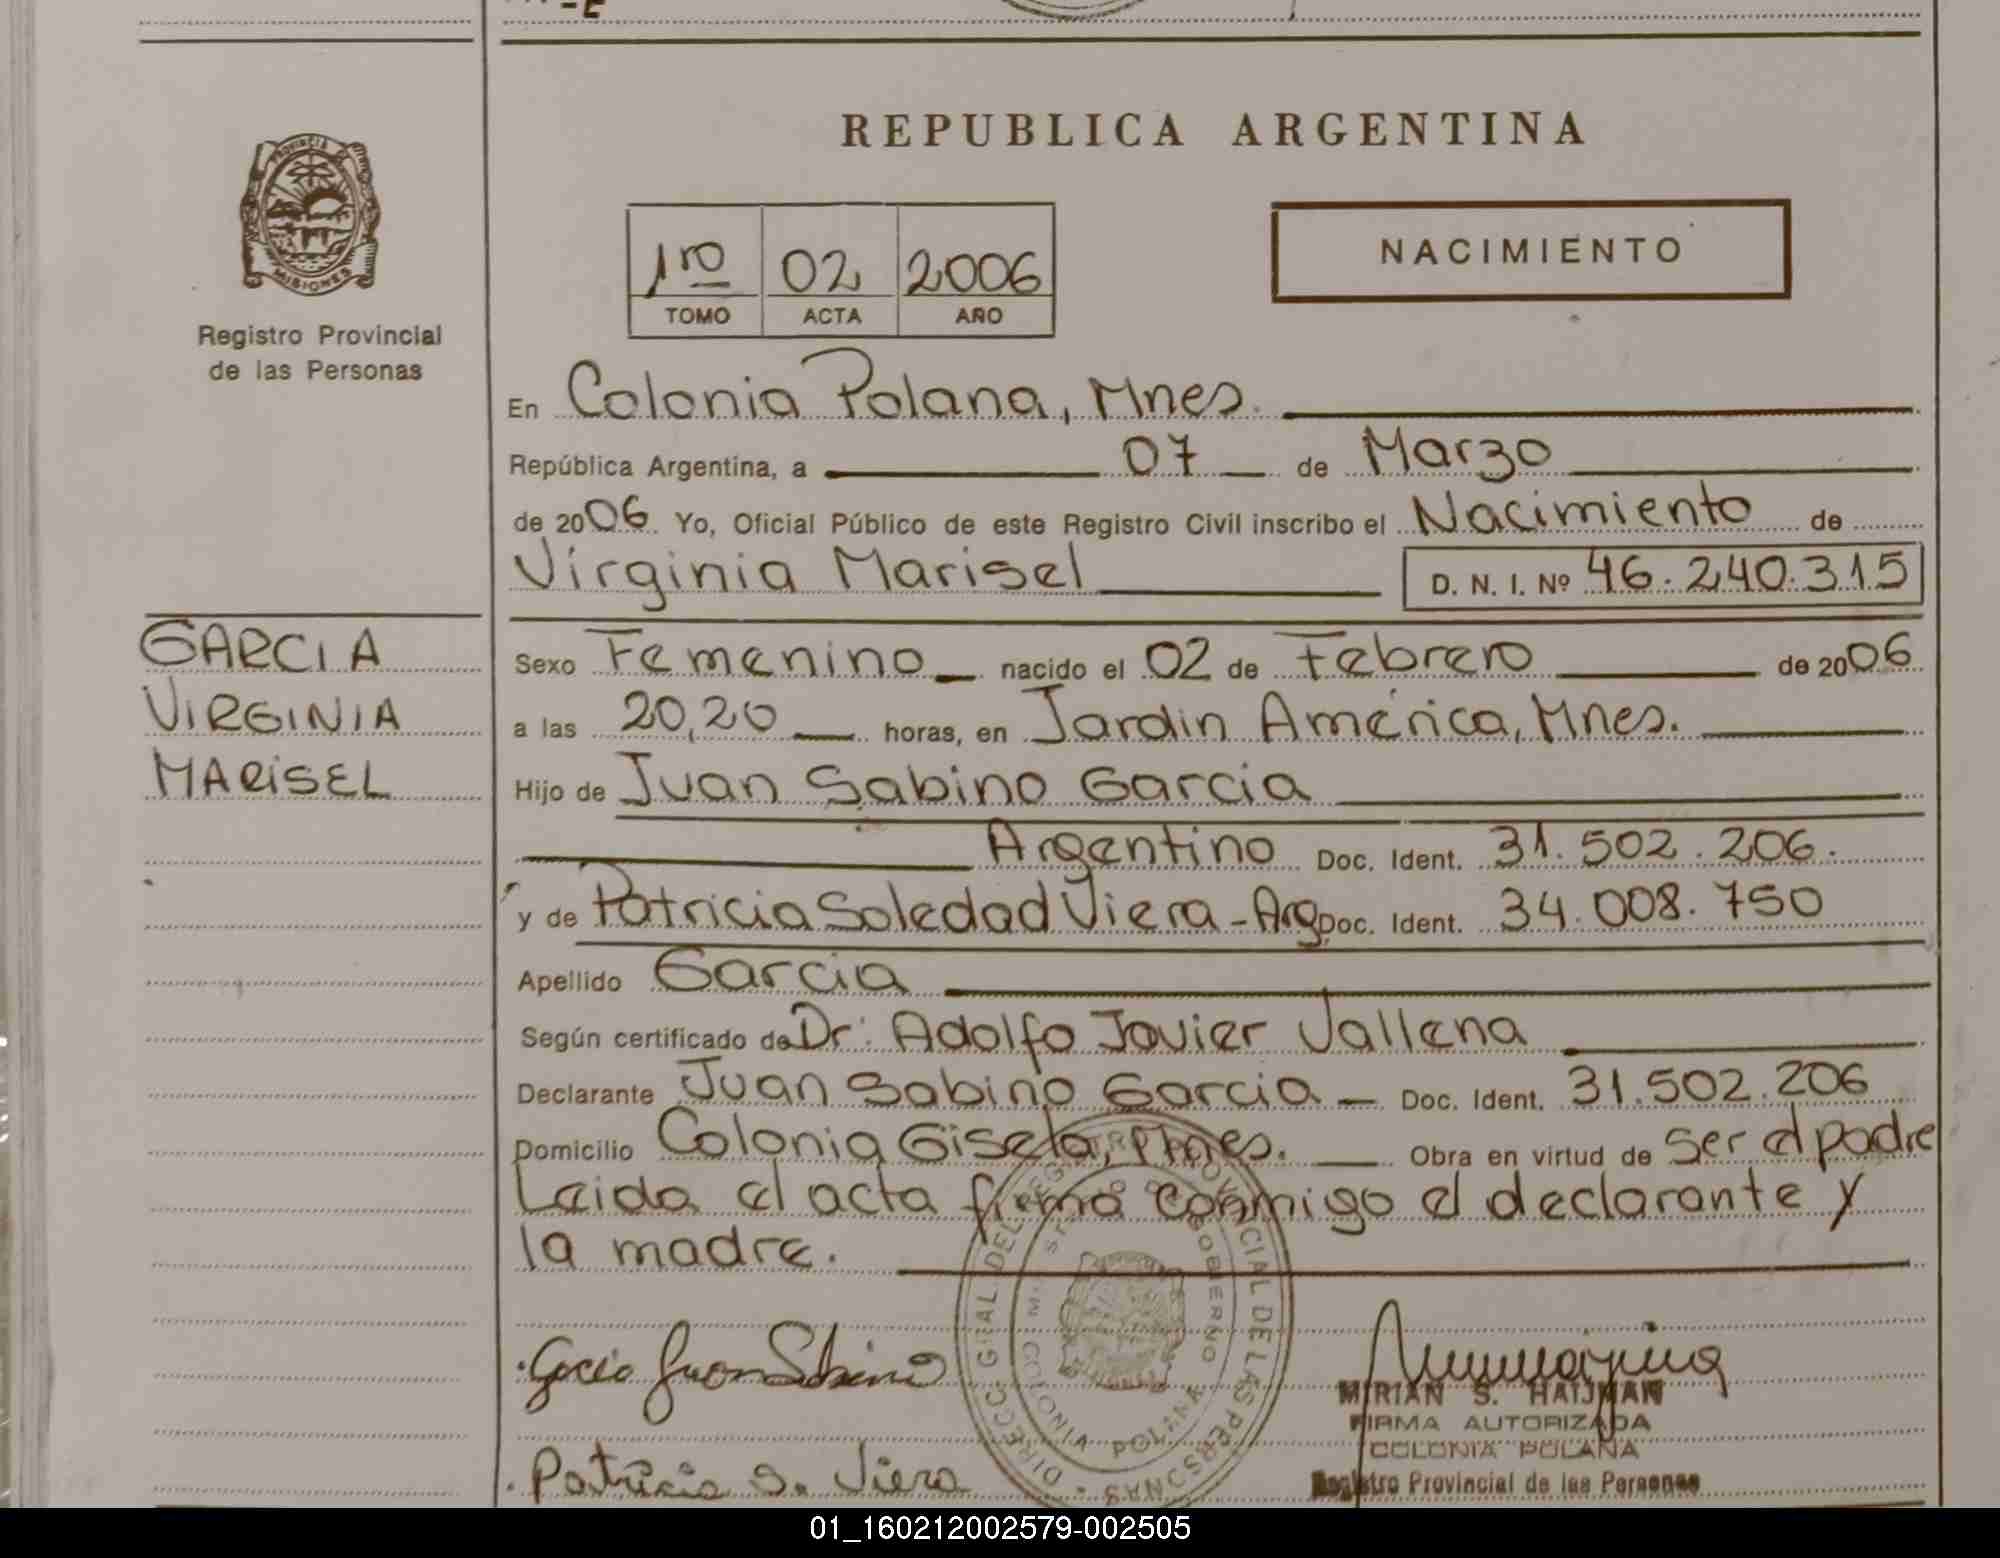 REPUBLICA ARGENTINA
PROVINCIA DE
MISIONES
Registro Provincial
de las Personas
1ro 02 2006
TOMO ACTA AÑO
NACIMIENTO
En Colonia Polana, Mnes.
República Argentina, a 07 de Marzo
de 2006. Yo, Oficial Público de este Registro Civil inscribo el Nacimiento de
Virginia Marisel D. N. I. Nº 46.240.315
GARCIA
VIRGINIA
MARISEL
Sexo Femenino nacido el 02 de Febrero de 2006
a las 20,20 horas, en Jardin América, Mnes.
Hijo de Juan Sabino Garcia
Argentino Doc. Ident. 31.502.206.
y de Patricia Soledad Viera - Arg. Doc. Ident. 34.008.750
Apellido Garcia
Según certificado de Dr: Adolfo Javier Vallena
Declarante Juan Sabino Garcia - Doc. Ident. 31.502.206
Domicilio Colonia Gisela, Mnes. Obra en virtud de ser el padre
Leida el acta firma conmigo el declarante y
la madre.
Garcia Juan Sabino
Patricia S. Viera
DIRECC. GRAL. DEL REGISTRO PROVINCIAL DE LAS PERSONAS
COLONIA POLANA
MIRIAN S. HAIJMAN
FIRMA AUTORIZADA
COLONIA POLANA
Registro Provincial de las Personas
01_160212002579-002505